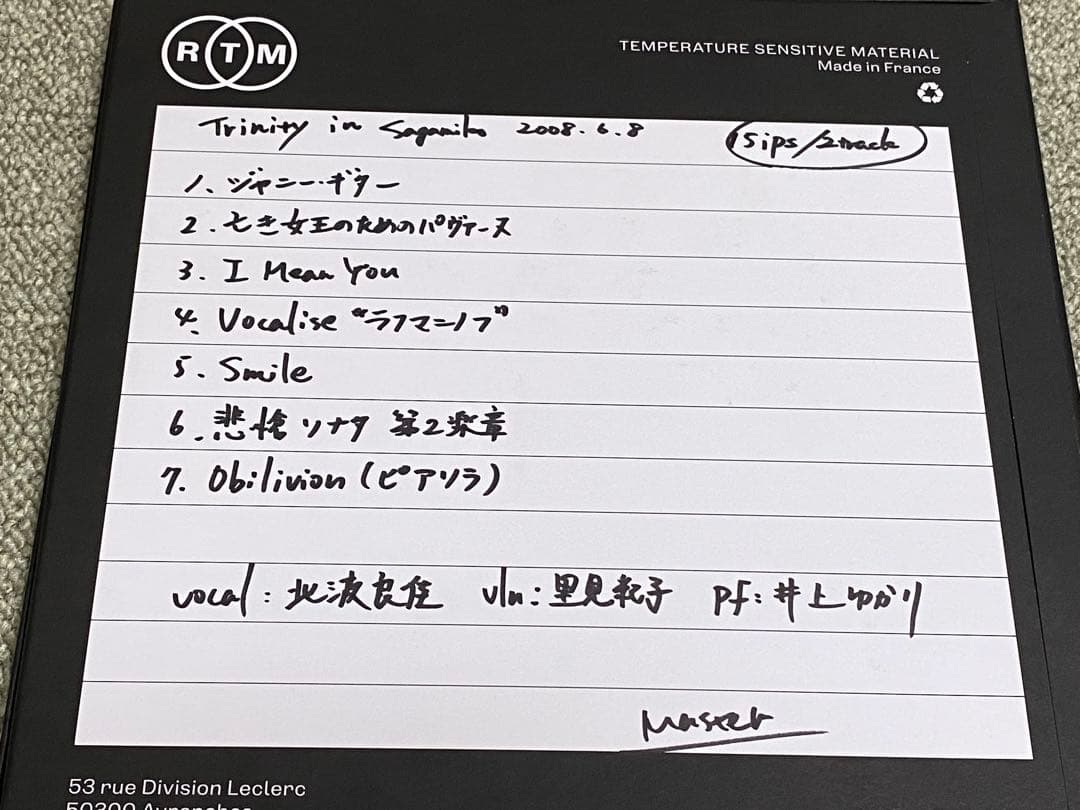 RTM
TEMPERATURE SENSITIVE MATERIAL
Made in France
Trinity in Sagamiko 2008.6.8
15ips/2track
1. ジャニー・ギター
2. 亡き女王のためのパヴァーヌ
3. I Mean You
4. Vocalise "ラフマニノフ"
5. Smile
6. 悲愴ソナタ 第2楽章
7. Oblivion (ピアソラ)
vocal: 北浪良佳 vln: 里見紀子 pf: 井上ゆかり
Master
53 rue Division Leclerc
50300 Avranches